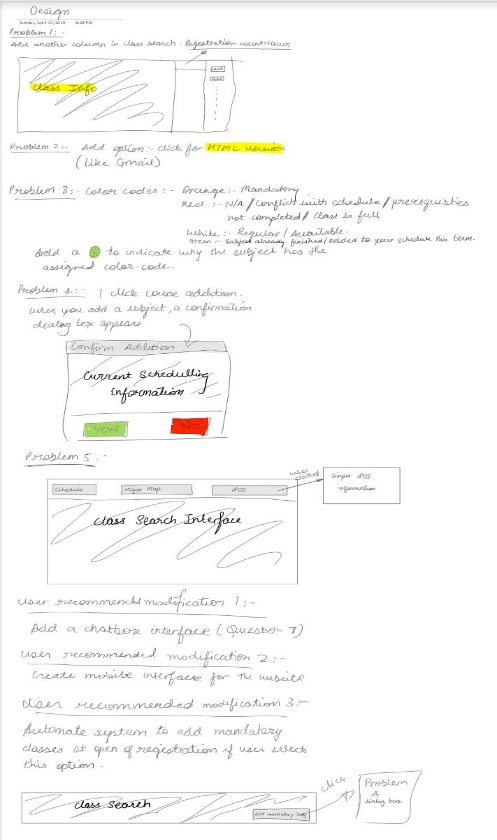 Design
Sunday, April 21, 2019 6:35 PM
Problem 1:-
Add another column in class search : Registration countdown
Class Info
Problem 2:- Add option:- click for HTML version
(Like Gmail)
Problem 3:- Color codes :- Orange:- Mandatory
Red :- N/A / Conflict with schedule / prerequisties
not completed / class is full
White :- Regular / Available.
Green :- Subject already finished / added to your schedule this term.
Add a to indicate why the subject has the
assigned color-code.
Problem 4:- 1 click course addition.
when you add a subject, a confirmation
dialog box appears
Confirm Addition
Current Schedulling
Information
Yes
No
Problem 5:-
Schedule
Major Map
iPOS
when clicked
Simple iPOS
information
Class Search Interface
User recommended modification 1:-
Add a chatbox interface (Question 7)
User recommended modification 2:-
Create mobile interface for the website
User recommended modification 3:-
Automate system to add mandatary
classes at open of registration if user selects
this option.
Class Search
Add mandatory
click
Problem
4
dialog box